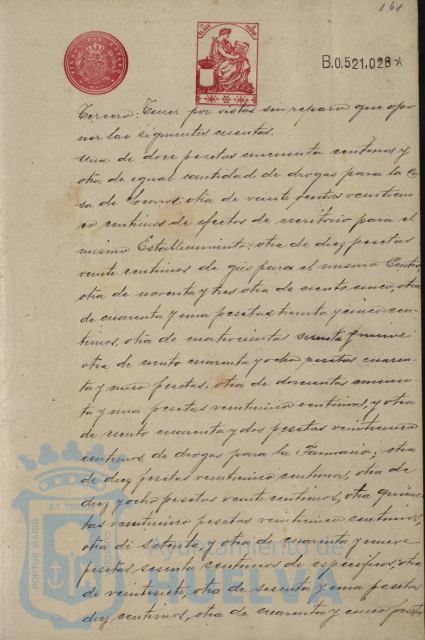 161
B.0.521,028*
Tercero: Tener por vistas sin reparo que opo-
ner las siguientes cuentas.
Una de doce pesetas cincuenta centimos y
otra de igual cantidad de drogas para la Ca-
sa de Socorros, otra de veinte pesetas veinticin-
co centimos de efectos de escritorio para el
mismo Establecimiento; otra de diez pesetas
veinte centimos de gas para el mismo Centro,
otra de noventa y tres otra de ciento cinco, otra
de cuarenta y una pesetas treinta y cinco cen-
timos, otra de cuatrocientas sesenta y nueve
otra de ciento cuarenta y ocho pesetas cuaren-
ta y cinco pesetas, otra de doscientas cincuen-
ta y una pesetas veinticinco centimos, y otra
de ciento cuarenta y dos pesetas veinticinco
centimos de drogas para la Farmacia; otra
de diez pesetas veinticinco centimos, otra de
diez y ocho pesetas veinte centimos, otra quinien-
tas veinticinco pesetas veinticinco centimos,
otra de setenta, y otra de cuarenta y nueve
pesetas sesenta centimos de especificos; otra
de veintisiete, otra de sesenta y una pesetas
diez centimos, otra de cuarenta y cinco pesetas
PORTUS MARIS
ET TER
Ayuntamiento de
HUELVA